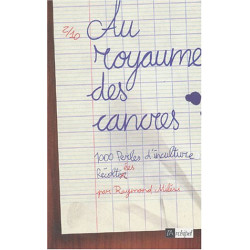 2/20
Au
royaume
des
cancres
1000 Perles d'inculture
Récoltées
par Raymond Milési
l'Archipel